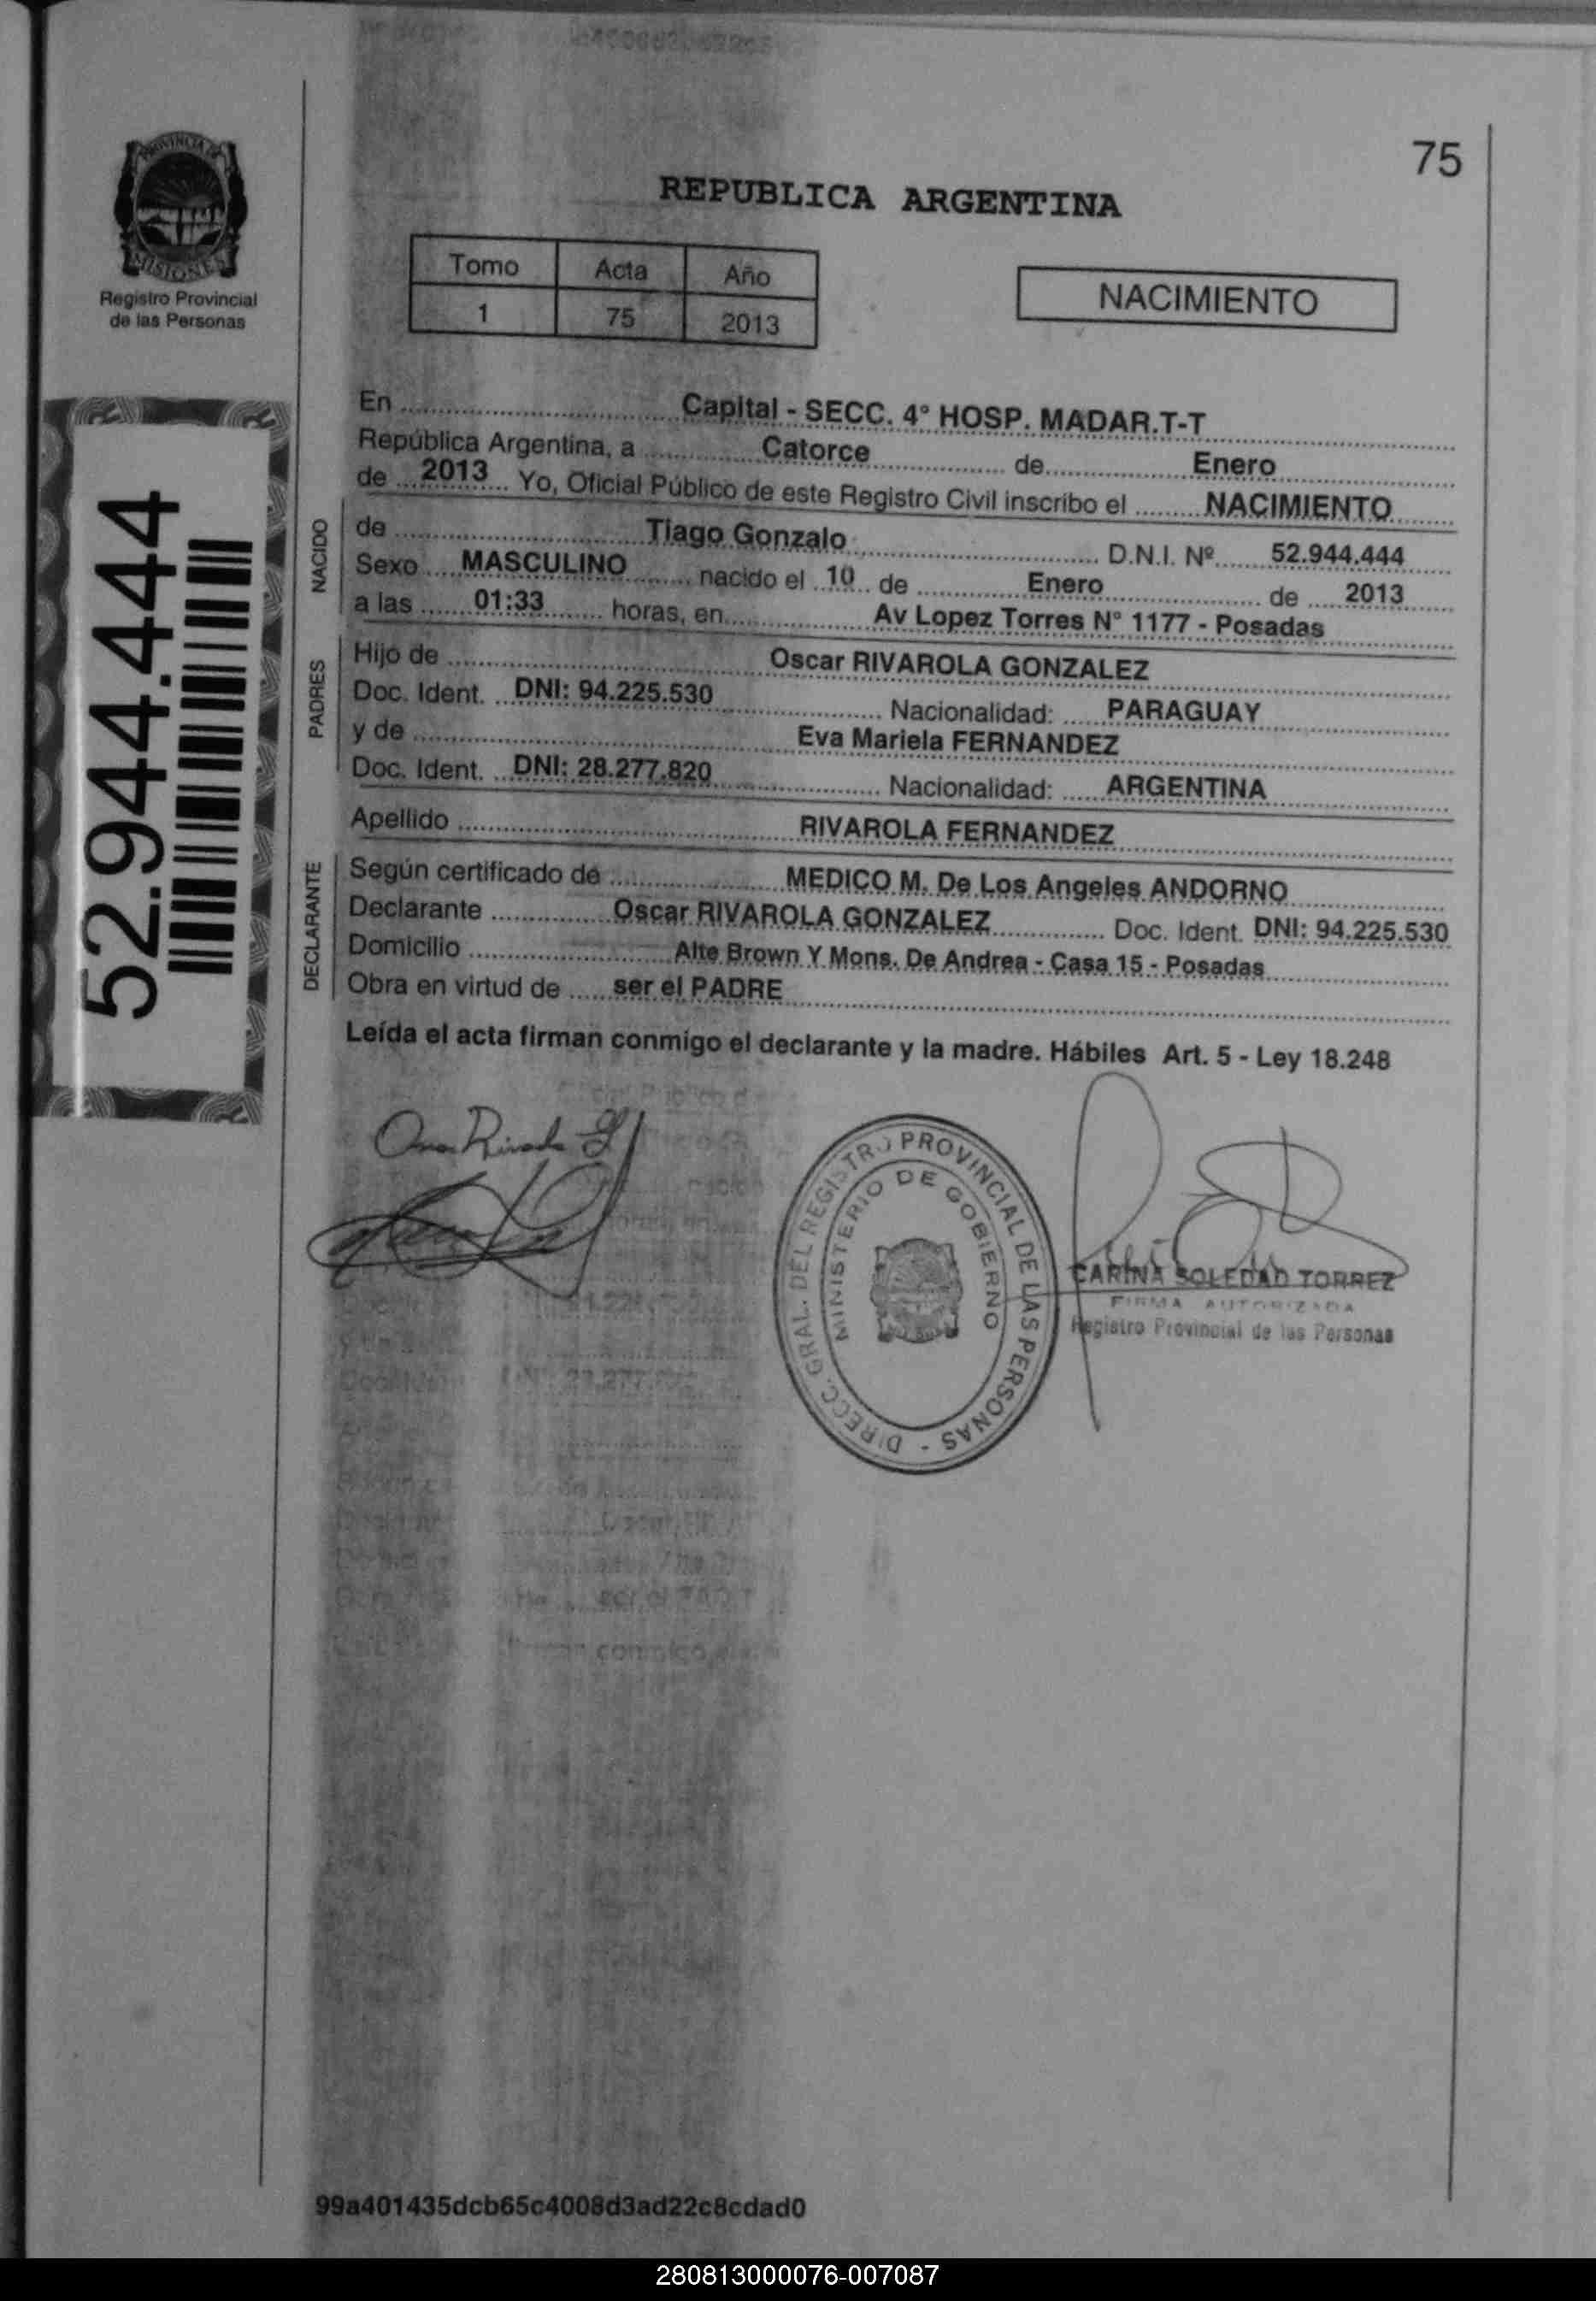 75
PROVINCIA DE
MISIONES
Registro Provincial
de las Personas
REPUBLICA ARGENTINA
Tomo Acta Año
1 75 2013
NACIMIENTO
52.944.444
En Capital - SECC. 4° HOSP. MADAR.T-T
República Argentina, a Catorce de Enero
de 2013 Yo, Oficial Público de este Registro Civil inscribo el NACIMIENTO
NACIDO
de Tiago Gonzalo D.N.I. Nº 52.944.444
Sexo MASCULINO nacido el 10 de Enero de 2013
a las 01:33 horas, en Av Lopez Torres N° 1177 - Posadas
PADRES
Hijo de Oscar RIVAROLA GONZALEZ
Doc. Ident. DNI: 94.225.530 Nacionalidad: PARAGUAY
y de Eva Mariela FERNANDEZ
Doc. Ident. DNI: 28.277.820 Nacionalidad: ARGENTINA
Apellido RIVAROLA FERNANDEZ
DECLARANTE
Según certificado de MEDICO M. De Los Angeles ANDORNO
Declarante Oscar RIVAROLA GONZALEZ Doc. Ident. DNI: 94.225.530
Domicilio Alte Brown Y Mons. De Andrea - Casa 15 - Posadas
Obra en virtud de ser el PADRE
Leída el acta firman conmigo el declarante y la madre. Hábiles Art. 5 - Ley 18.248
DIRECC. GRAL. DEL REGISTRO PROVINCIAL DE LAS PERSONAS -
MINISTERIO DE GOBIERNO
CARINA SOLEDAD TORREZ
FIRMA AUTORIZADA
Registro Provincial de las Personas
99a401435dcb65c4008d3ad22c8cdad0
280813000076-007087